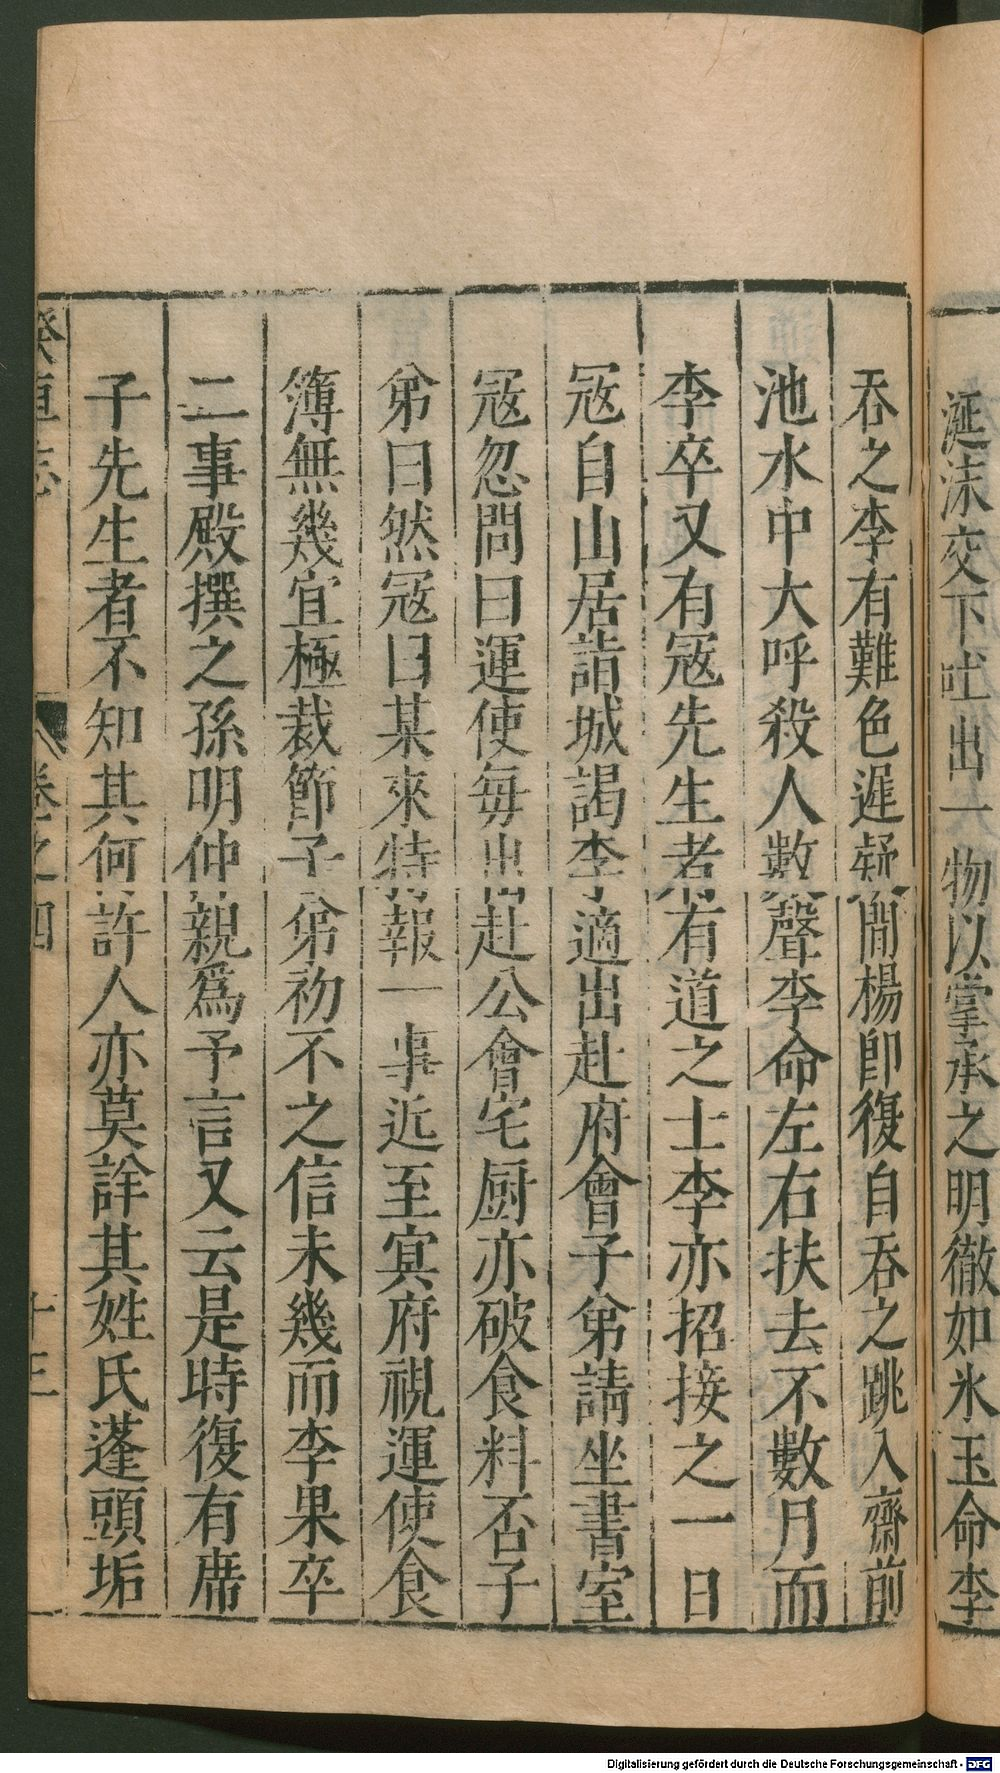 涎沫交下吐出一物以掌承之明徹如氷玉命李
吞之李有難色遲疑間楊卽復自吞之跳入齋前
池水中大呼殺人數聲李命左右扶去不數月而
李卒又有冦先生者有道之士李亦招接之一日
冦自山居詣城謁李適出赴府會子弟請坐書室
冦忽問曰運使每出赴公會宅厨亦破食料否子
弟曰然冦曰某來特報一事近至寘府視運使食
簿無幾宜極裁節子弟初不之信未幾而李果卒
二事殿撰之孫明仲親爲予言又云是時復有席
子先生者不知其何許人亦莫詳其姓氏蓬頭垢
睽車志 卷之四 十三
Digitalisierung gefördert durch die Deutsche Forschungsgemeinschaft - DFG